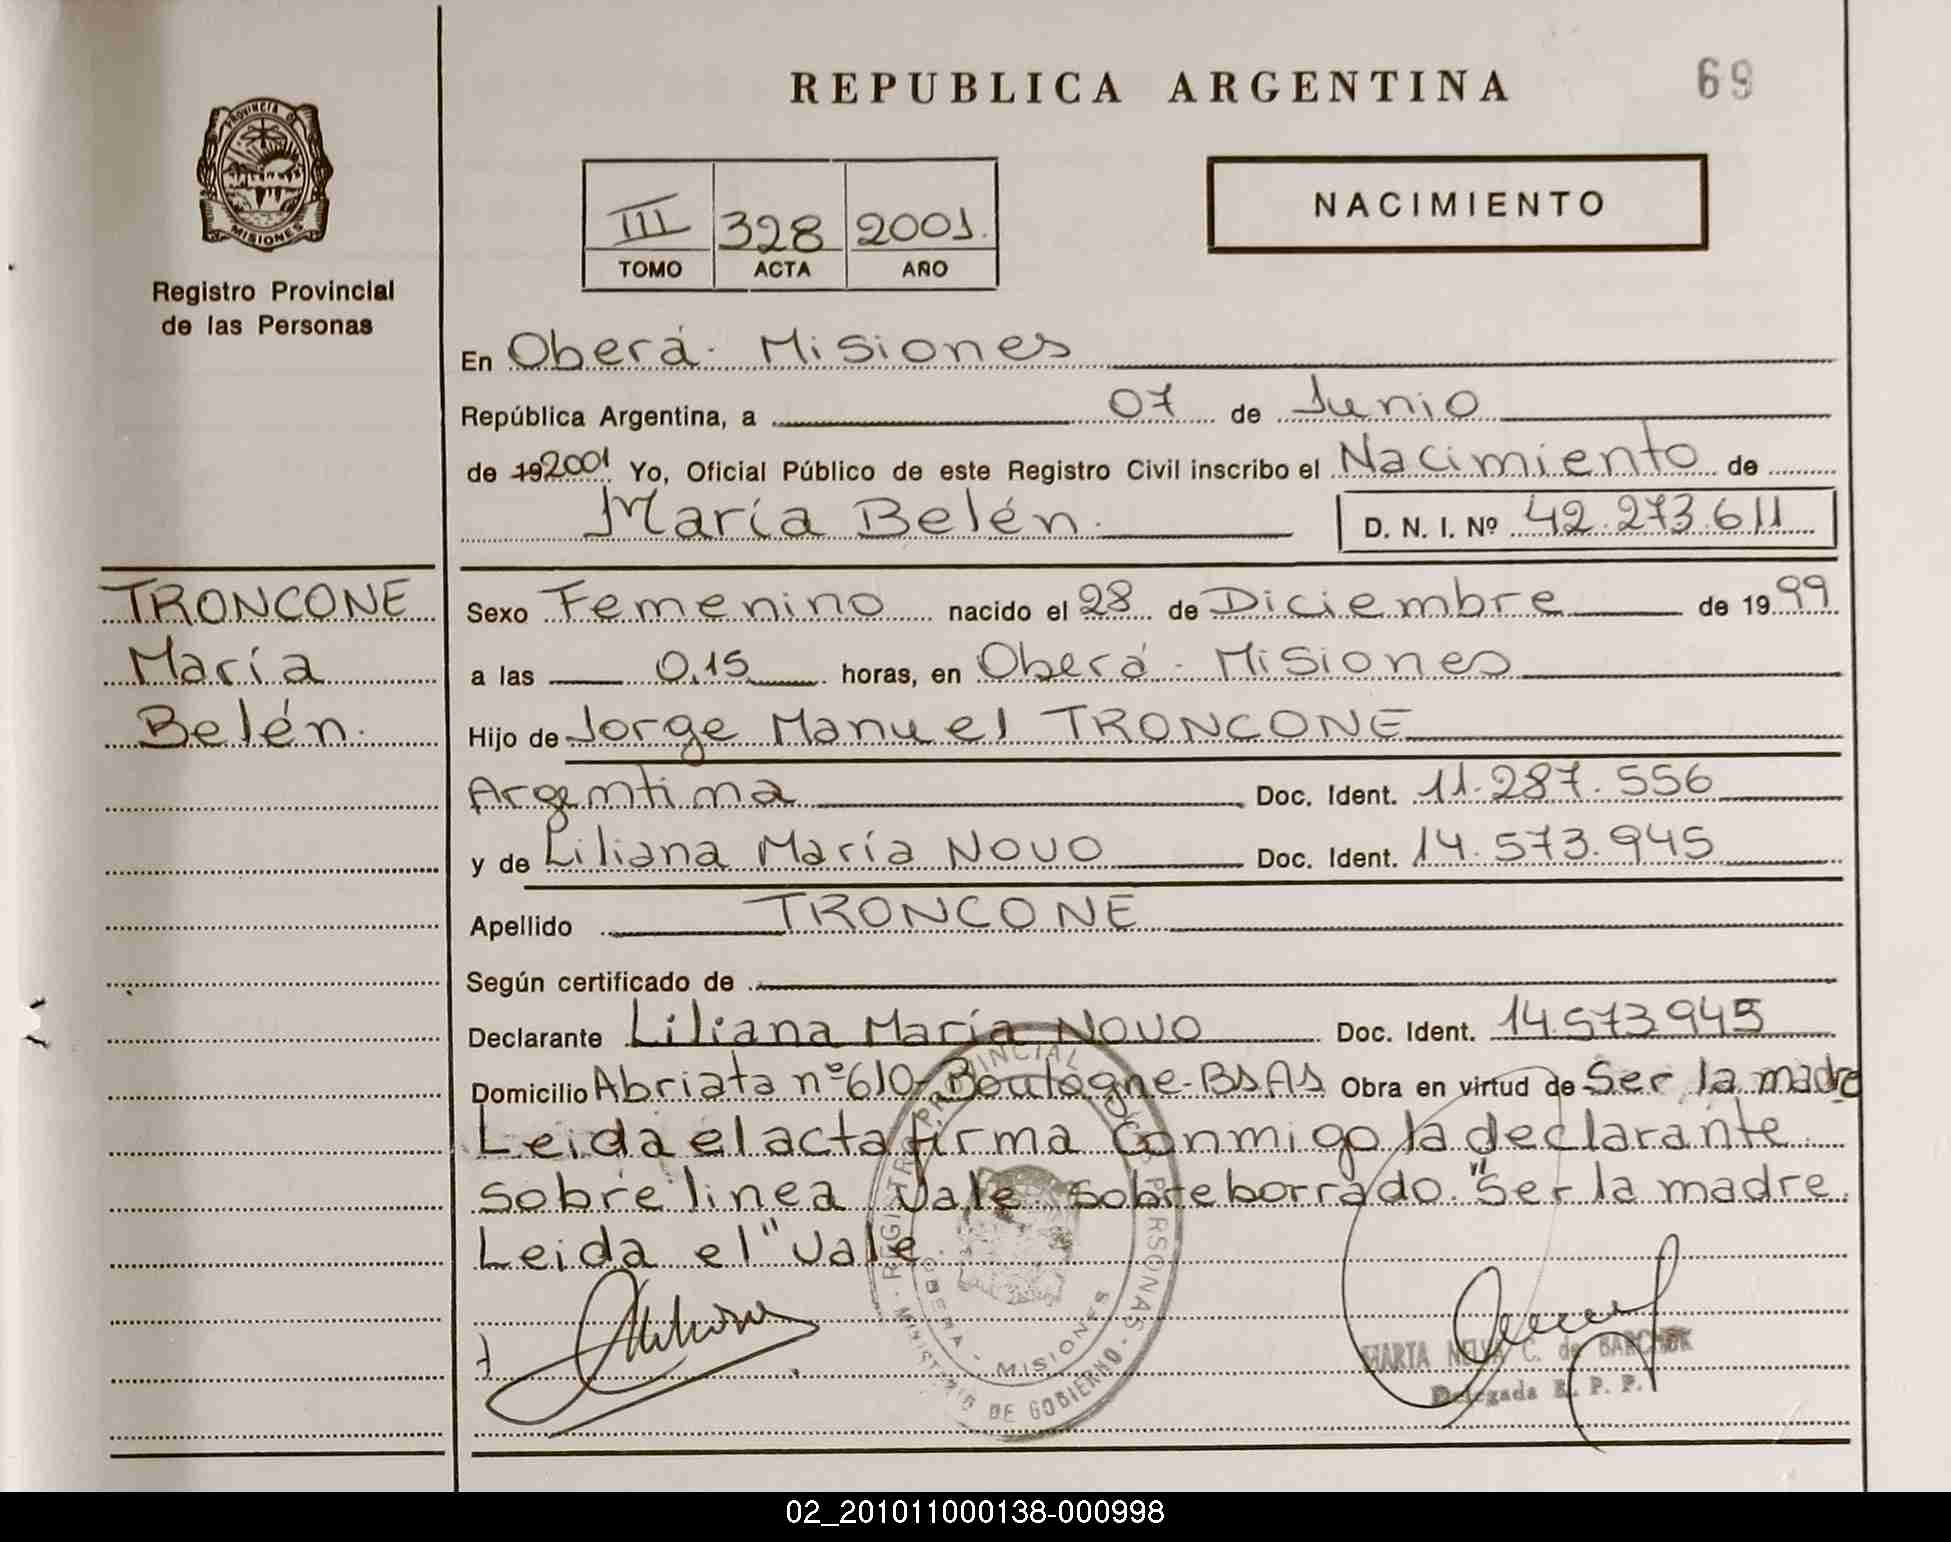 REPUBLICA ARGENTINA
69
PROVINCIA DE
MISIONES
Registro Provincial
de las Personas
III 328 2001.
TOMO ACTA AÑO
NACIMIENTO
En Oberá - Misiones
República Argentina, a 07 de Junio
de 192001 Yo, Oficial Público de este Registro Civil inscribo el Nacimiento de
María Belén.
D. N. I. Nº 42.273.611
TRONCONE
María
Belén.
Sexo Femenino nacido el 28 de Diciembre de 1999
a las 0.15 horas, en Oberá - Misiones
Hijo de Jorge Manuel TRONCONE
Argentina Doc. Ident. 11.287.556
y de Liliana María NOVO Doc. Ident. 14.573.945
Apellido TRONCONE
Según certificado de
Declarante Liliana María NOVO Doc. Ident. 14.573.945
Domicilio Abriata nº 610 - Boulogne - BsAs Obra en virtud de Ser la madre
Leida el acta firma conmigo la declarante.
sobre linea Vale sobre borrado "Ser la madre.
Leida el" Vale.
REGISTRO PROVINCIAL DE LAS PERSONAS - MINISTERIO DE GOBIERNO -
OBERA - MISIONES
MARTA NELVA C. de
Delegada R. P. P.
02_201011000138-000998